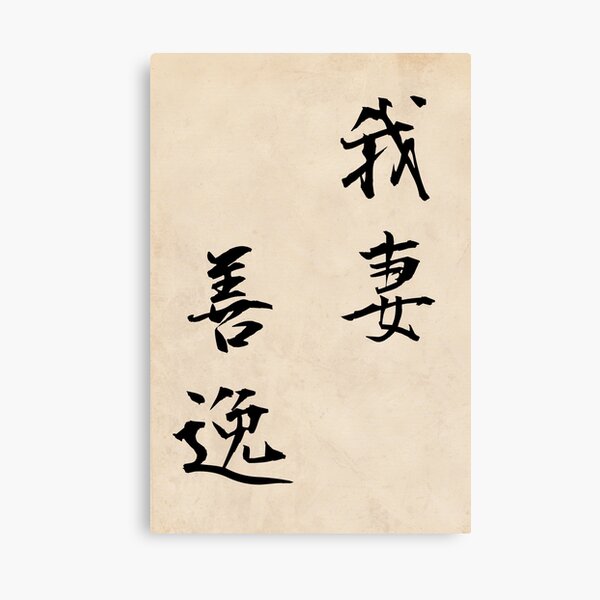 我妻
善逸